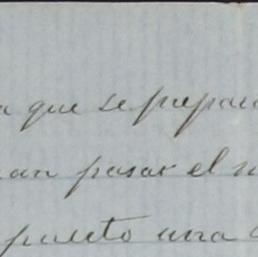 que se prepara
pasar el
puesto una